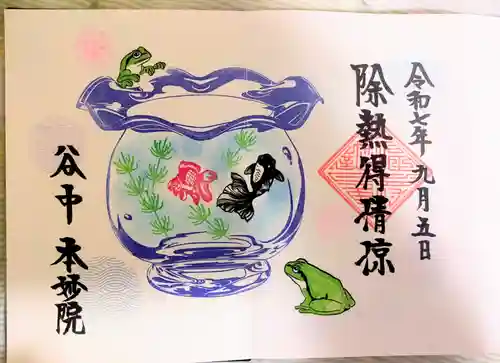 令和七年九月五日
除熱得清涼
谷中 本妙院